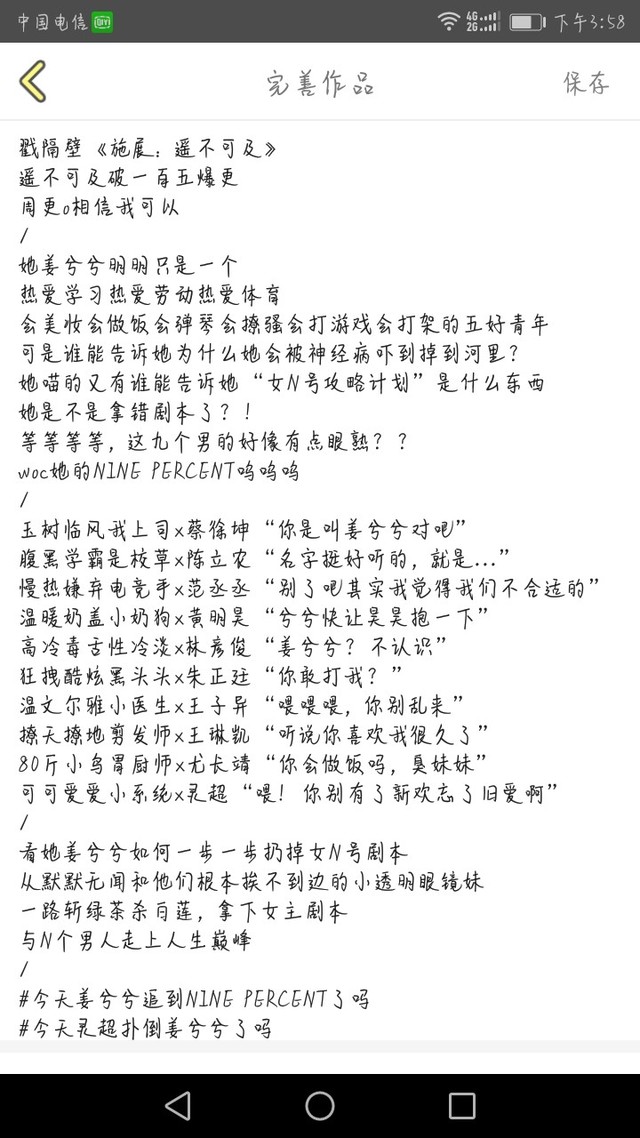 中国电信 iQIYI 4G 2G 下午3:58
完善作品 保存
戳隔壁《施展：遥不可及》
遥不可及破一百五爆更
周更o相信我可以
/
她姜兮兮明明只是一个
热爱学习热爱劳动热爱体育
会美妆会做饭会弹琴会撩骚会打游戏会打架的五好青年
可是谁能告诉她为什么她会被神经病吓到掉到河里？
她喵的又有谁能告诉她“女N号攻略计划”是什么东西
她是不是拿错剧本了？！
等等等等，这九个男的好像有点眼熟？？
woc她的NINE PERCENT呜呜呜
/
玉树临风我上司x蔡徐坤“你是叫姜兮兮对吧”
腹黑学霸是校草x陈立农“名字挺好听的，就是...”
慢热嫌弃电竞手x范丞丞“别了吧其实我觉得我们不合适的”
温暖奶盖小奶狗x黄明昊“兮兮快让昊昊抱一下”
高冷毒舌性冷淡x林彦俊“姜兮兮？不认识”
狂拽酷炫黑头头x朱正廷“你敢打我？”
温文尔雅小医生x王子异“喂喂喂，你别乱来”
撩天撩地剪发师x王琳凯“听说你喜欢我很久了”
80斤小鸟胃厨师x尤长靖“你会做饭吗，臭妹妹”
可可爱爱小系统x灵超“喂！你别有了新欢忘了旧爱啊”
/
看她姜兮兮如何一步一步扔掉女N号剧本
从默默无闻和他们根本挨不到边的小透明眼镜妹
一路斩绿茶杀白莲，拿下女主剧本
与N个男人走上人生巅峰
/
#今天姜兮兮追到NINE PERCENT了吗
#今天灵超扑倒姜兮兮了吗